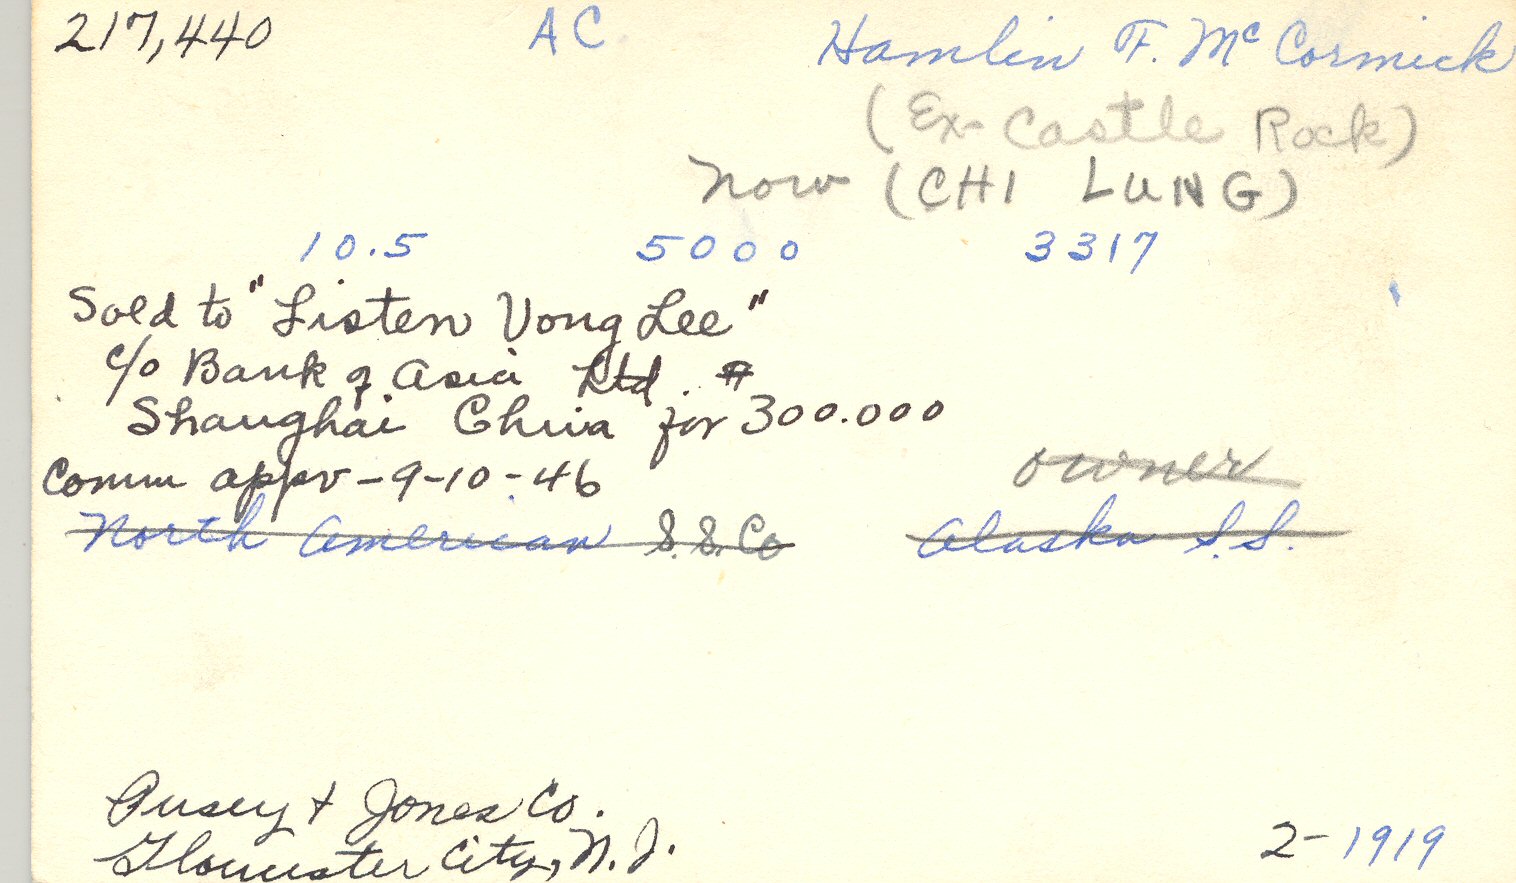 217,440 AC Hamlin F. McCormick
(Ex-Castle Rock)
Now (CHI LUNG)
10.5 5000 3317
Sold to "Listen Vong Lee"
c/o Bank of Asia Ltd. #
Shanghai China for 300.000
Comm appv-9-10-46 owner
North American S.S. Co Alaska S.S.
Pusey + Jones Co.
Gloucester City, N.J.
2-1919